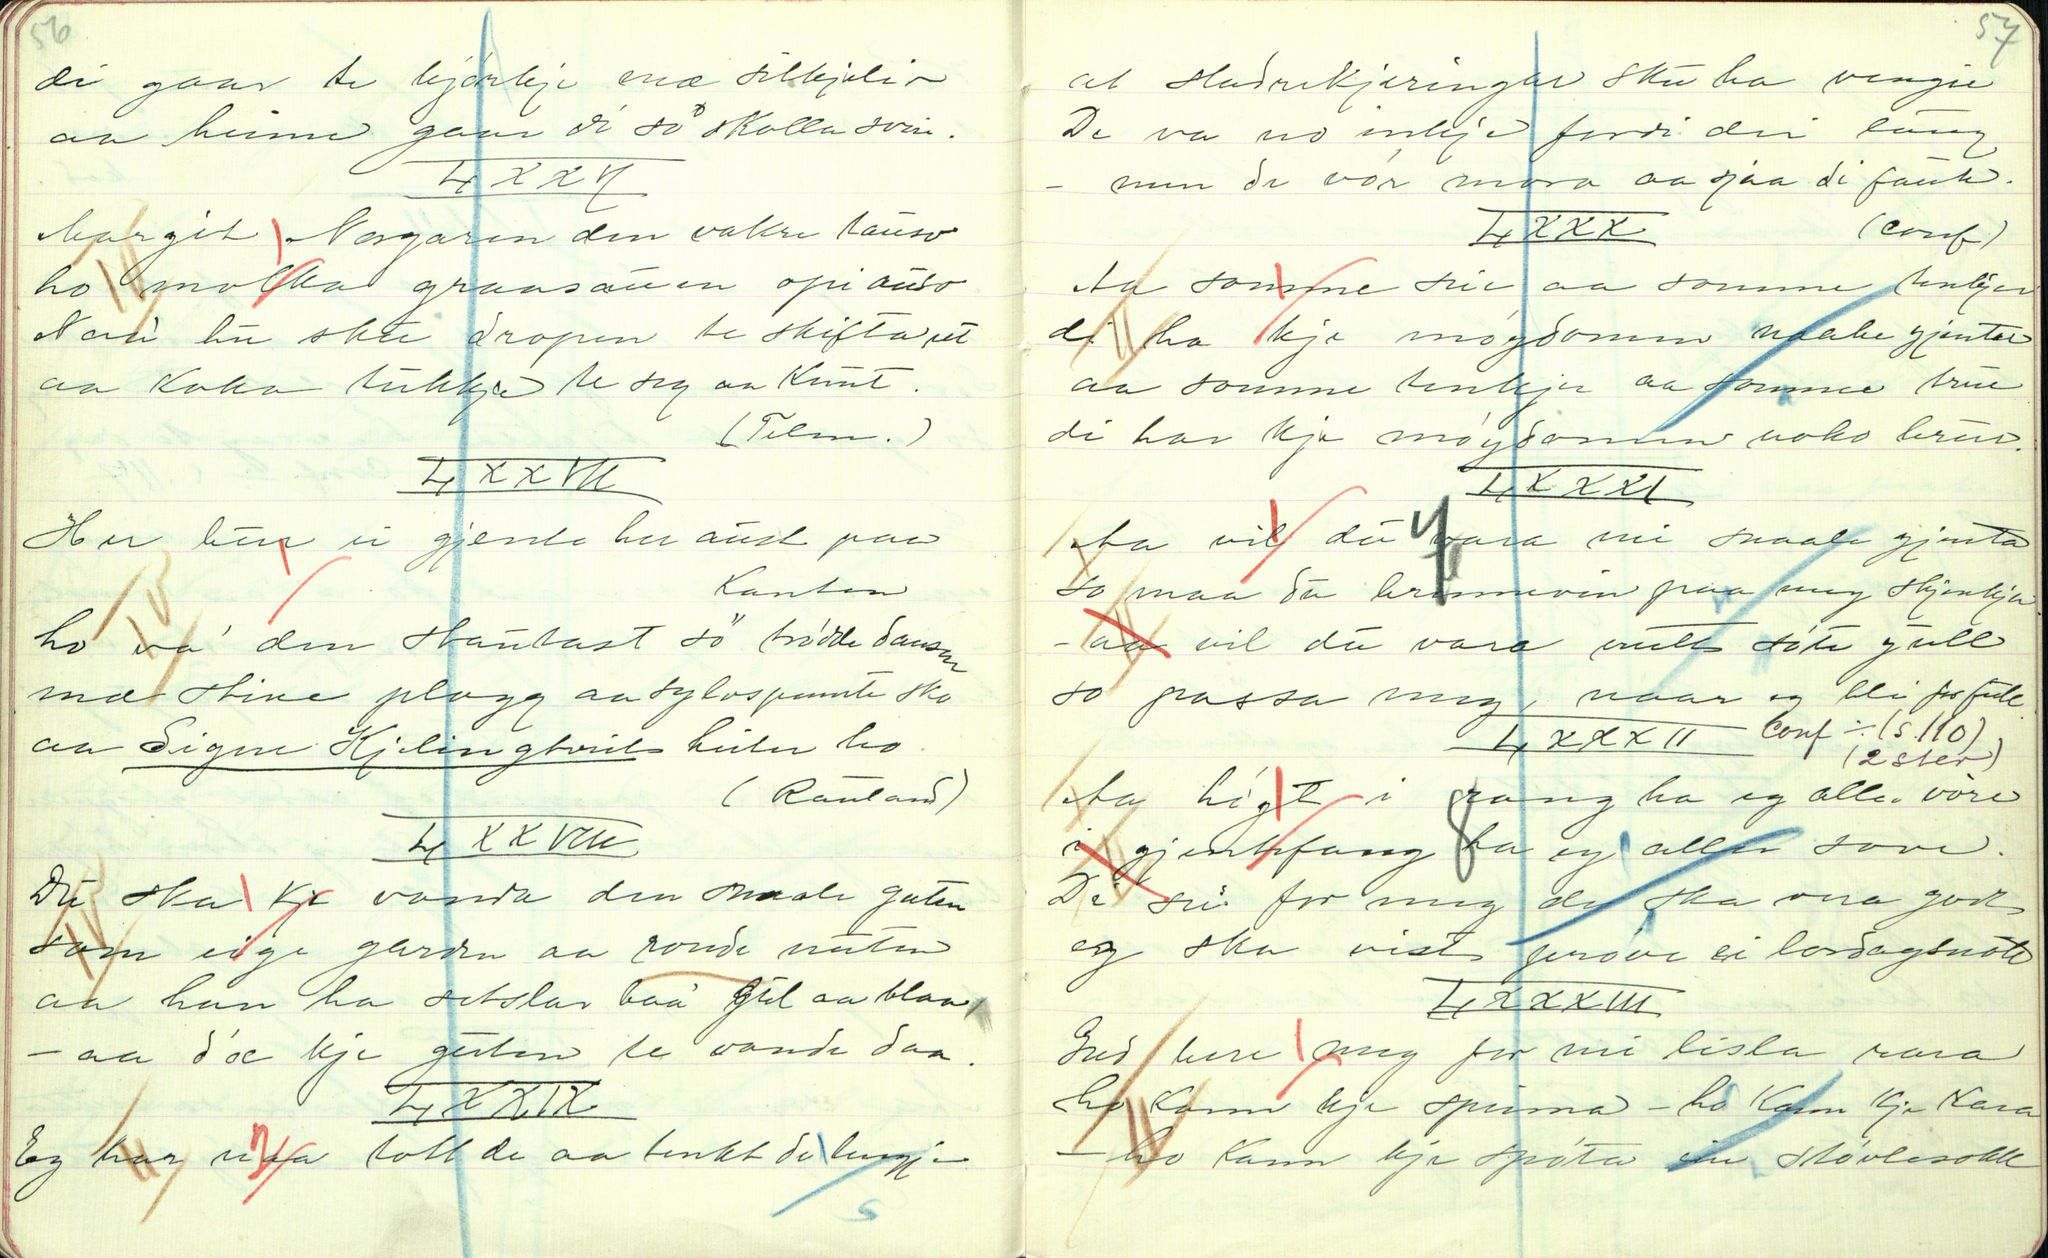 56
di gaar te kjørkje mæ silkjeliv
aa heime gaar di so skolla svin.
LXXVI
Margit Norgaren den vakre tauso
ho molka graasauen opi auso
Naa ho sku dropen te skifta ut
aa koka tukkje te seg aa Knut.
(Telm.)
LXXVII
Her bur ei gjente her aust paa
Kanten
ho va den stautast so trødde dansen
mæ stive plagg aa sylvspente sko
aa Signe Kjelingtveit heiter ho.
(Rauland)
LXXVIII
Du ska kje vanda den snaale guten
som eige garden aa ronde nuten
aa han ha setslar baa gul aa blaa,
- aa d'æ kje guten te vande daa.
LXXIX
Eg har naa tott de aa tenkt de lengje
57
at sladrekjeringar sku ha vengje
De va no inkje fordi dei laug
- men de vór mora aa sjaa di fauk.
LXXX
(conf)
Aa somme seie aa somme tenkjer
di ha kje møydomen naake gjenter
aa somme tenkje aa somme true
di har kje møydomen noko brur.
LXXXI
Aa vil du vara mi snaale gjenta
so maa du brennevin paa meg skjenkja
- aa vil du vara mitt søte gull
so passa meg, naar eg bli for full
LXXXII
conf ÷ (s. 110)
(2 ster)
Aa høgt i rang ha eg alle vøre
i gjentefang ha eg aller sove.
De sei for meg de ska vera godt
eg ska vist prøve ei lørdagsnott
LXXXIII
Gud bere meg for mi lisla rara
ho kann kje spinna - ho kann kje kara
- ho kann kje spøta ein støvlesokk